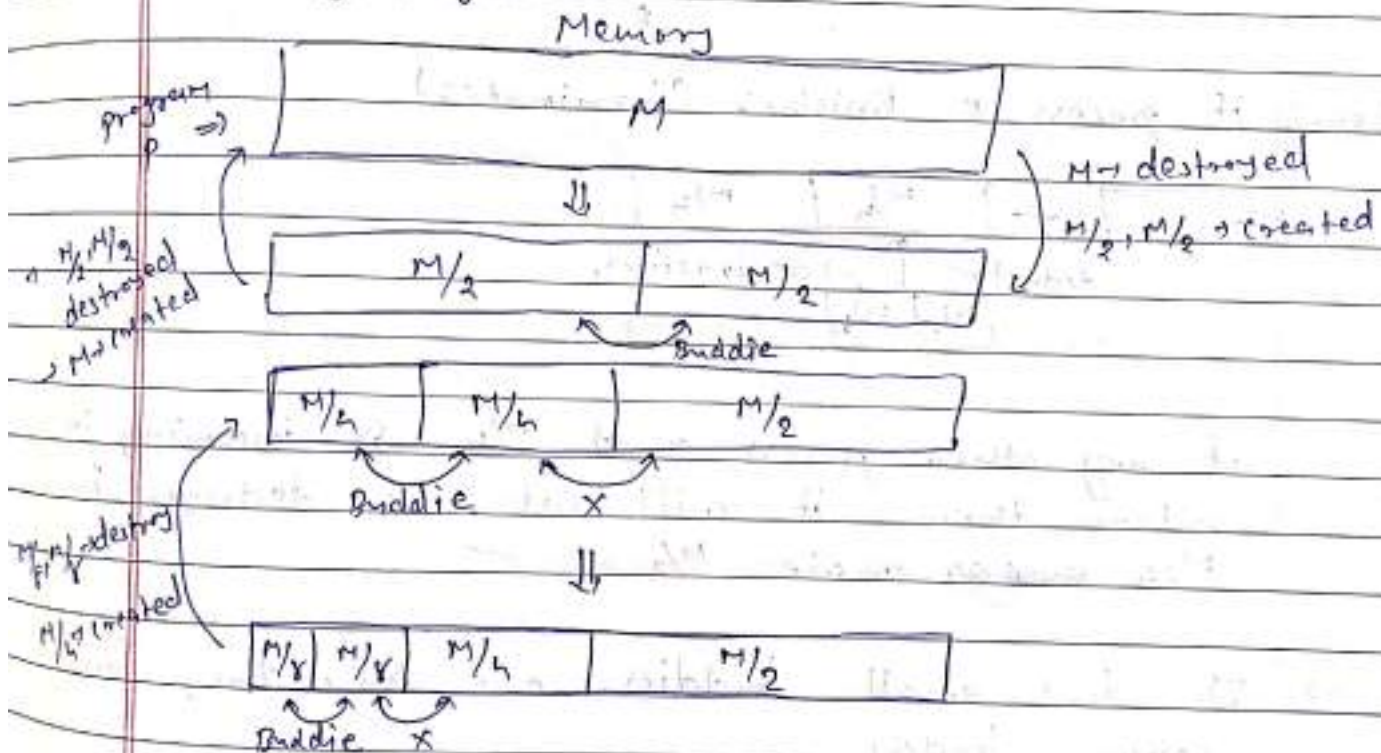 Memory
program
P ⇒
M
M → destroyed
M/2, M/2 → Created
⇓
M/2 M/2
→ M/2, M/2
destroyed
→ M → Created
Buddie
M/4 M/4 M/2
Buddie X
M/8, M/8 → destroy
M/4 → Created
⇓
M/8 M/8 M/4 M/2
Buddie X